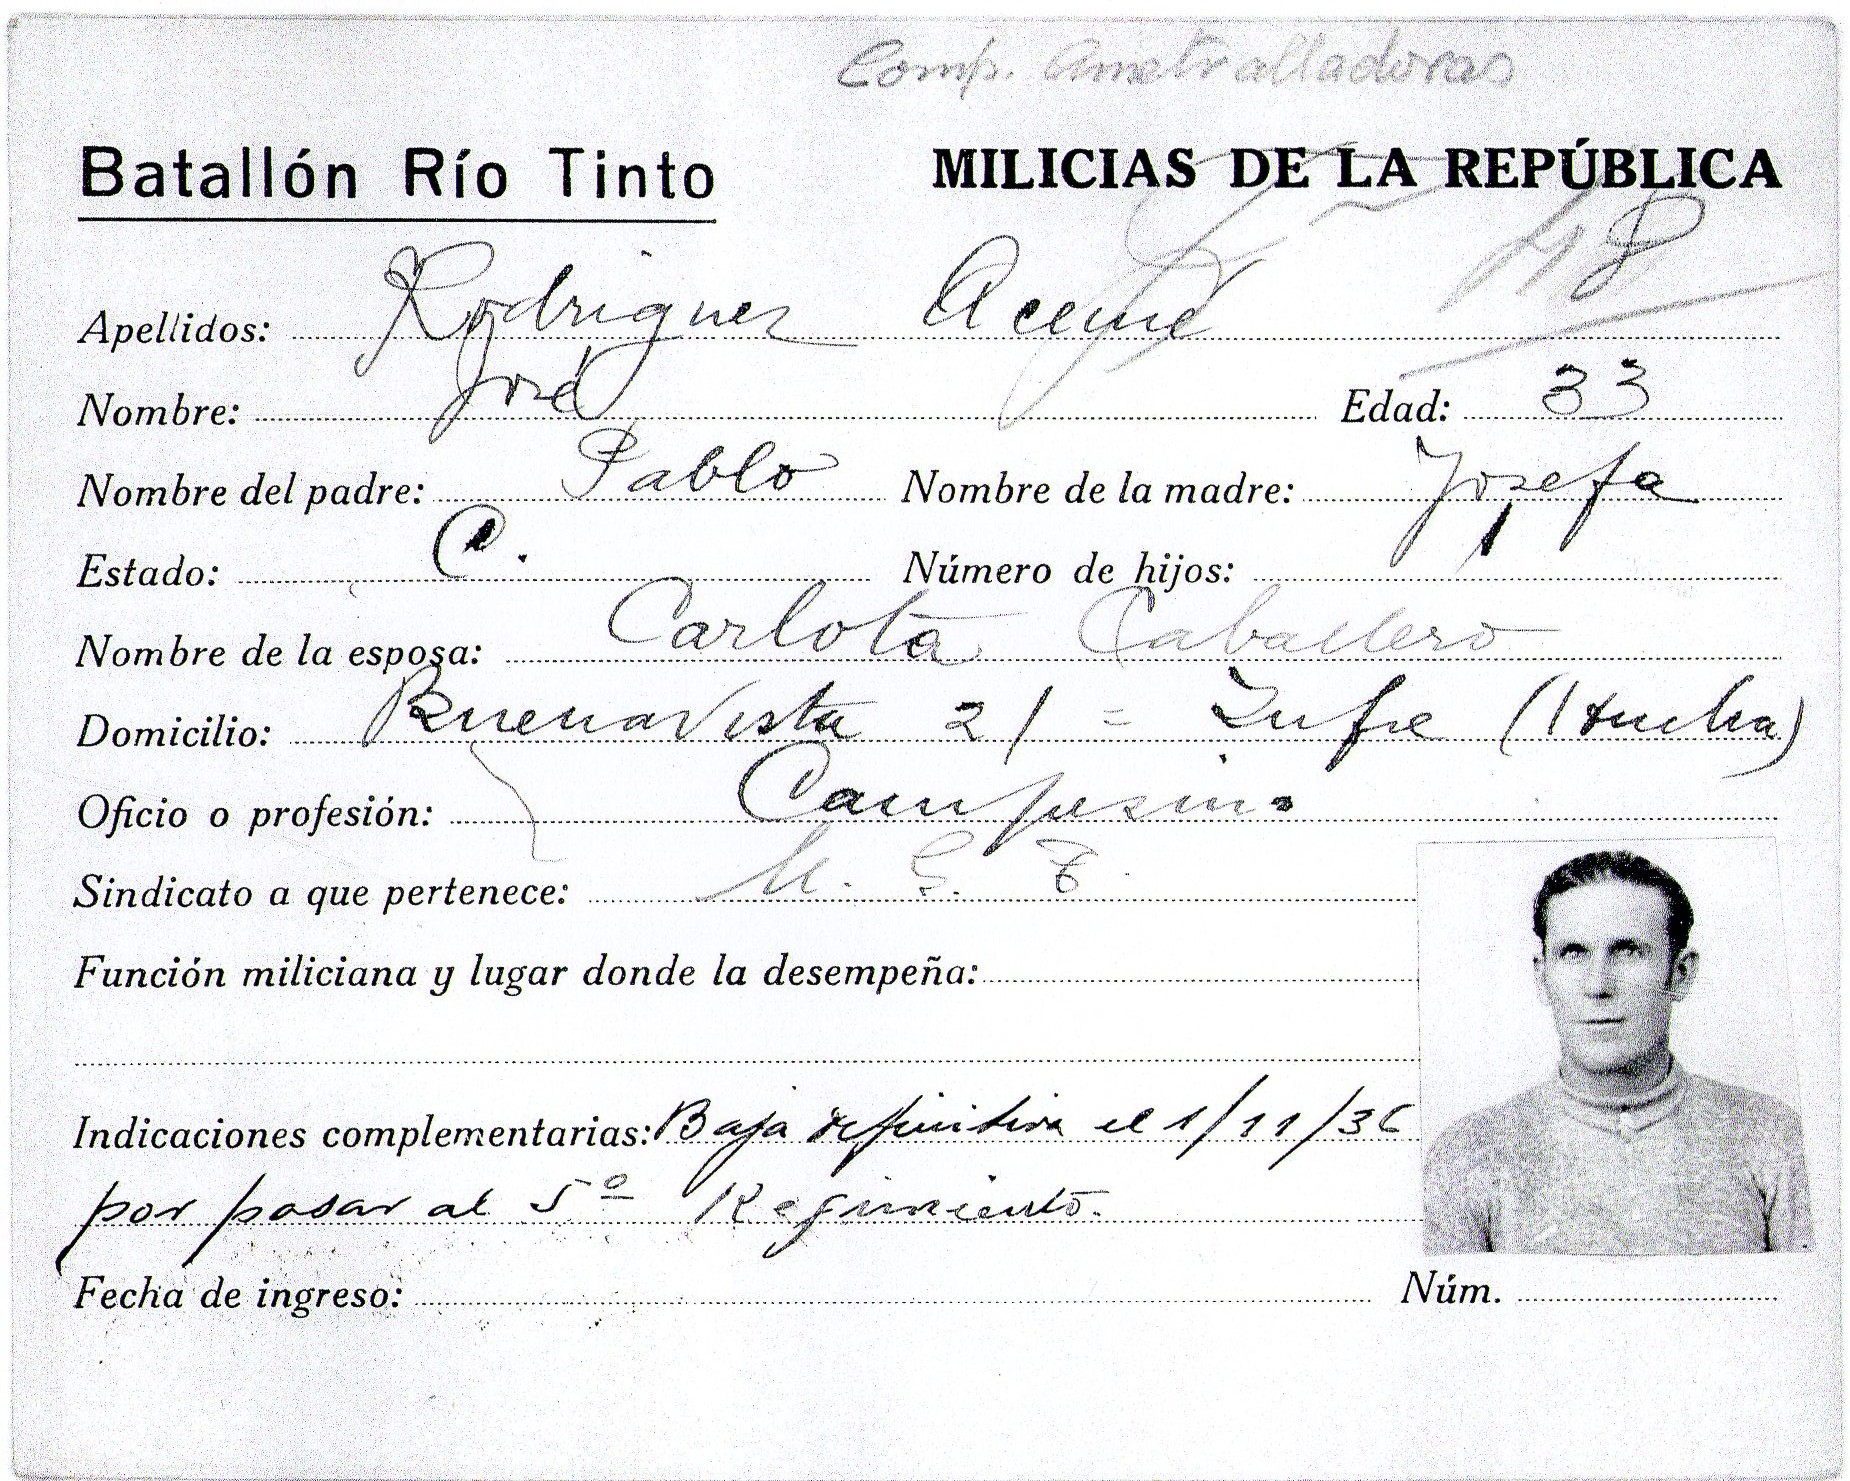 Comp. Ametralladoras
Batallón Río Tinto MILICIAS DE LA REPÚBLICA
Apellidos: Rodriguez
Nombre: José Edad: 33
Nombre del padre: Pablo Nombre de la madre: Josefa
Estado: C. Número de hijos: 1
Nombre de la esposa: Carlota Caballero
Domicilio: Buenavista 21 = Zufre (Huelva)
Oficio o profesión: Campesino
Sindicato a que pertenece: U. G. T.
Función miliciana y lugar donde la desempeña:
Indicaciones complementarias: Baja definitiva el 1/11/36
por pasar al 5º Regimiento.
Fecha de ingreso: Núm.